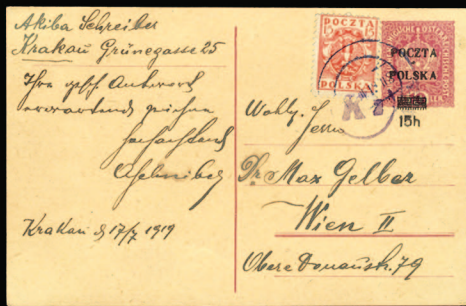 Akiba Schreiber
Krakau Grünegasse 25
Ihre gesch Antwort
erwartend zeichne
hochachtend
ASchreiber
Krakau d 17/7 1919
15 POCZTA 15
POLSKA
POCZTA
POLSKA
15h
K 2
Wohlg.
Herrn
Dr Max Gelber
Wien II
Obere Donaustr. 79